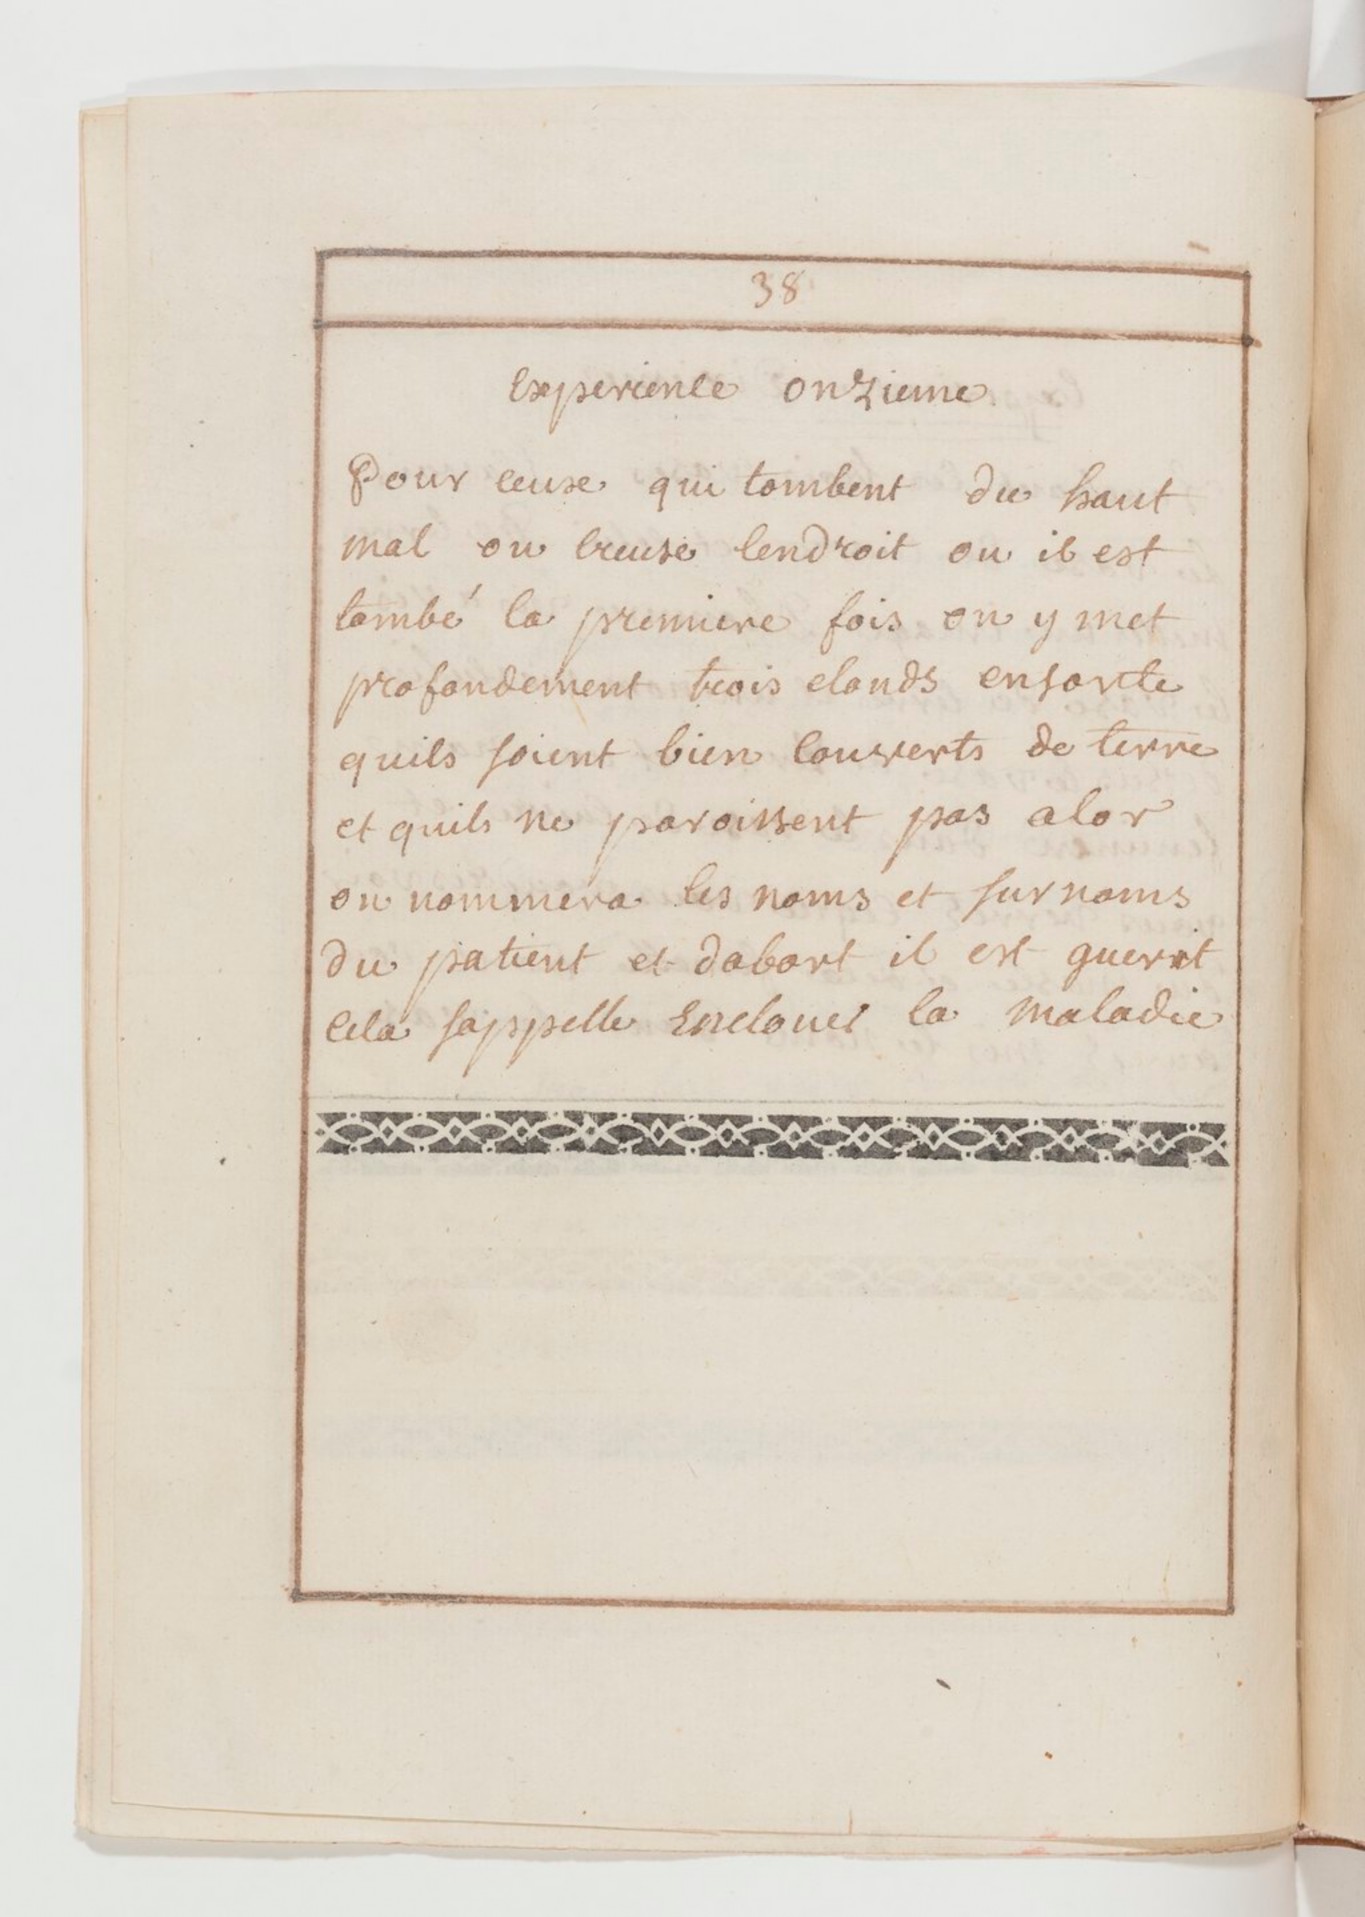 38
Experience onzieme
Pour ceux qui tombent du haut
mal on creuse lendroit ou il est
tombé la premiere fois on y met
profondement trois clouds ensorte
quils soient bien couverts de terre
et quils ne paroissent pas alor
on nommera les noms et surnoms
du patient et dabort il est guerit
cela sappelle Enclouer la maladie